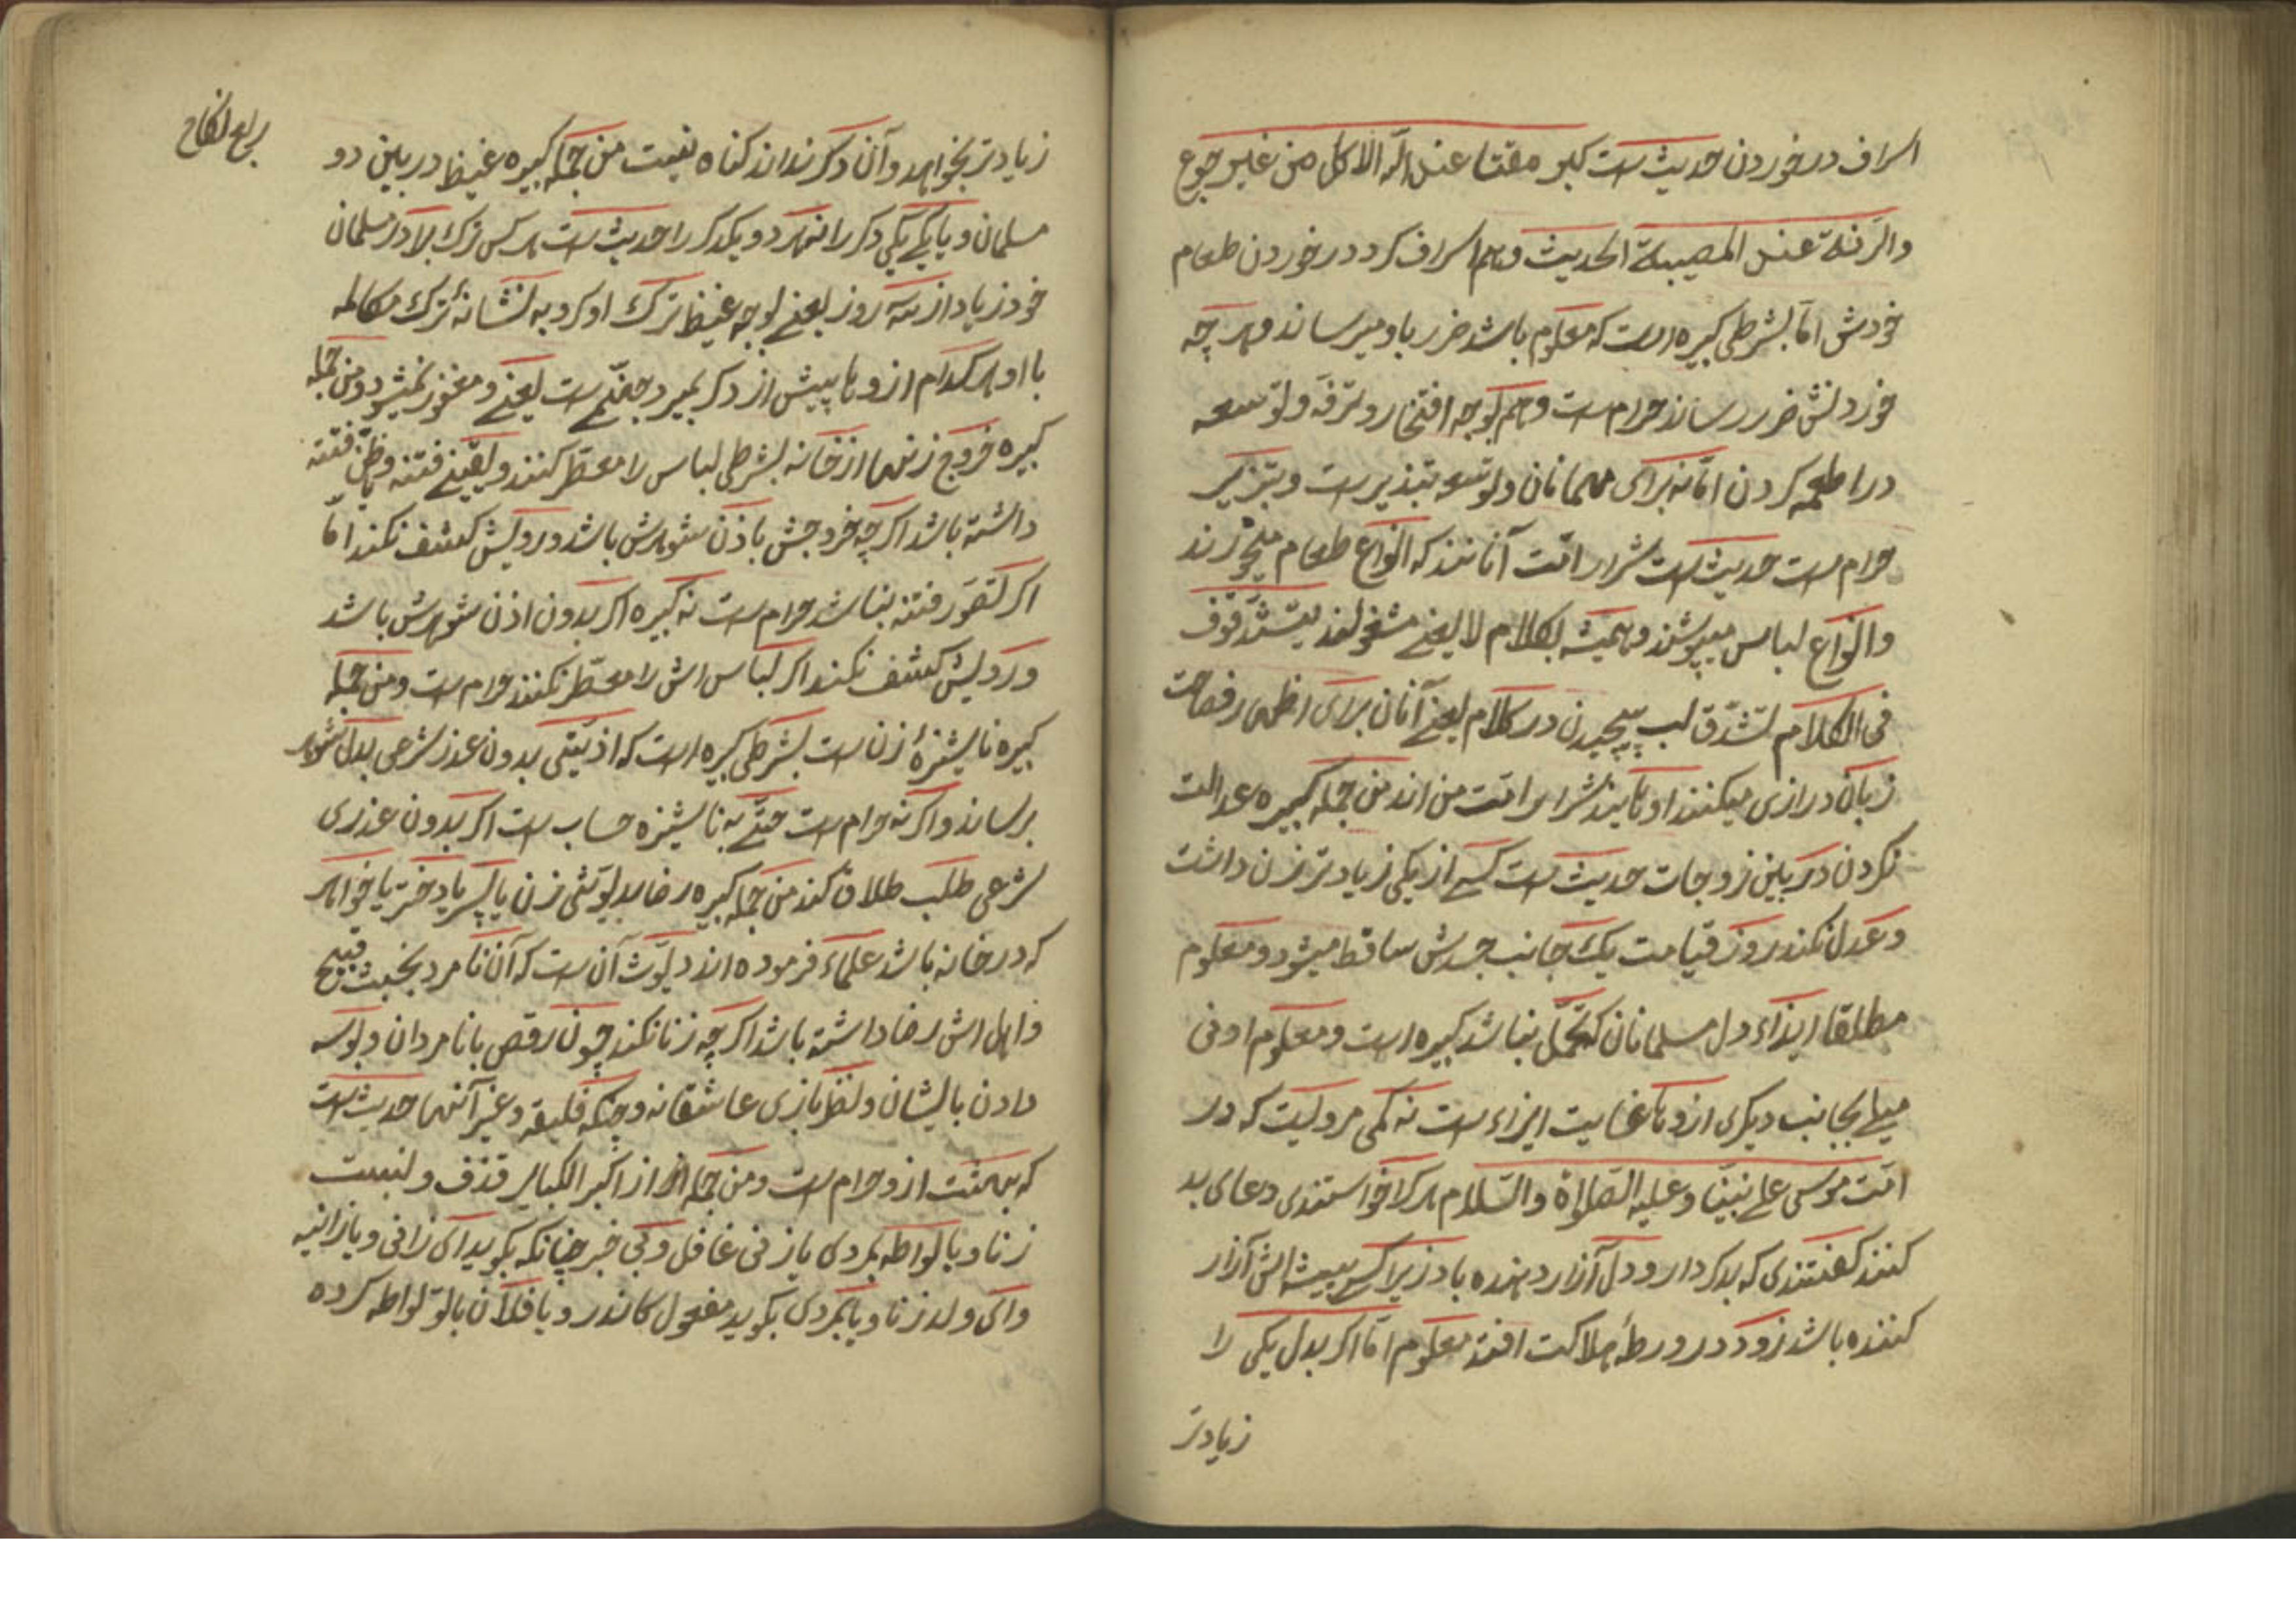 اسراف در خوردن حدیث است کبر مقتا عند الله الاکل من غیر جوع
والرنة عند المصیبة الحدیث وهم اسراف کرد در خوردن طعام
خودش امّا بشرطی کبیره است که معلوم باشد ضرر باو میرساند وهر چه
خوردنش ضرر رساند حرام است وهم بوجه افتخار وترفّه ولتوسعه
در اطعمه کردن امّا نه برای مهمانان ولتوسعه تبذیر است وتبزیر
حرام است حدیث است شرار امّت آنانند که انواع طعام میخورند
وانواع لباس میپوشند وهمیشه بکلام لایعنی مشغولند یتشدّقون
فی الکلام تشدّق لب پیچیدن در کلام یعنی آنان برای اظهار فصاحت
زبان درازی میکنند اوتایند شرار امّت من اند من جمله کبیره عدالت
نکردن در بین زوجات حدیث است کسی از یکی زیادتر زن داشت
وعدل نکند روز قیامت یک جانب جسدش ساقط میشود ومعلوم
مطلقا ایذاء دل مسلمانان که تحمّل نباشد کبیره است ومعلوم اونی
میل بجانب دیگری ازوها غایت ایزاء است نه کمی مرویست که در
امّت موسی علی نبیّنا وعلیه الصّلواة والسّلام هرکرا خواستندی دعای بد
کنند گفتندی که بدکردار ودل آزار دهنده باد زیرا کسی پیشه‌اش آزار
کننده باشد زود در ورطهٔ هلاکت افتد معلوم امّا اگر بدل یکی را
زیادتر
برای نکاح
زیادتر بخواهد وآن دگر نداند گناه نیست من جمله کبیره غیظ در بین دو
مسلمان ویا یکی یکی دگر را نتهرد ویکدگر را حدیث است هر کس ترک برادر مسلمان
خود زیاد از سه روز یعنی بوجه غیظ ترک او کرد به نشانهٔ ترک مکالمه
با او هر کدام ازوها پیش از دگر بمیرد جهنّمی است یعنی ومغفور نمیشود ومن جمله
کبیره خروج زنها از خانه بشرطی لباس را معطّر کنند ویقینی فتنه ویا ظنّ فتنه
داشته باشد اگرچه خروجش باذن شوهرش باشد ورویش کشف نکند امّا
اگر تصوّر فتنه نباشد حرام است نه کبیره اگر بدون اذن شوهرش باشد
ورویش کشف نکند اگر لباس اش را معطّر نکنند حرام است ومن جمله
کبیره ناشیزهٔ زن است بشرطی کبیره است که اذیّتی بدون عذر شرعی بدل شوهر
برساند واگر نه حرام است حتّی به ناشیزه حساب است اگر بدون عذری
شرعی طلب طلاق کند من جمله کبیره رضا بدیّوثی زن یا پسر یا دختر یا خواهر
که در خانه باشد علماء فرموده اند دیّوث آن است که آن نامرد بخبث قبیح
واهل اش رضا داشته باشد اگرچه زنا نکند چون رقص با نامردان وبوسه
دادن بایشان ونظربازی عاشقانه وجکه قلیقه وغیر آنها حدیث است
که بهشت ازو حرام است ومن جمله از اکبر الکبایر قذف ونسبت
زنا ویا لواطه بمردی یا زنی غافل وبی خبر چنانکه بگوید ای زانی ویا زانیه
وای ولد زنا ویا بمردی بگوید مفعول کاندر ویا فلان بالو لواطه کرده